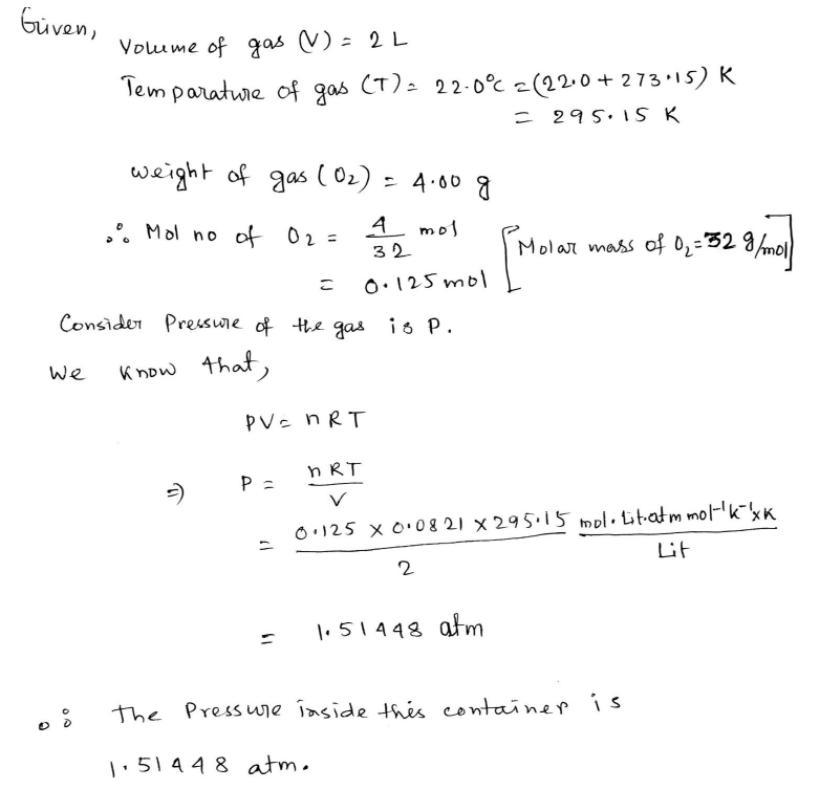 Given,
Volume of gas (V) = 2 L
Temparature of gas (T) = 22.0°C = (22.0 + 273.15) K
= 295.15 K
weight of gas (O₂) = 4.00 g
∴ Mol no of O₂ = 4/32 mol [Molar mass of O₂ = 32 g/mol]
= 0.125 mol
Consider Pressure of the gas is P.
We know that,
PV = nRT
⇒ P = nRT/V
= 0.125 × 0.0821 × 295.15/2 mol. Lit.atm mol⁻¹ K⁻¹ × K/Lit
= 1.51448 atm
∴ The Pressure inside this container is
1.51448 atm.